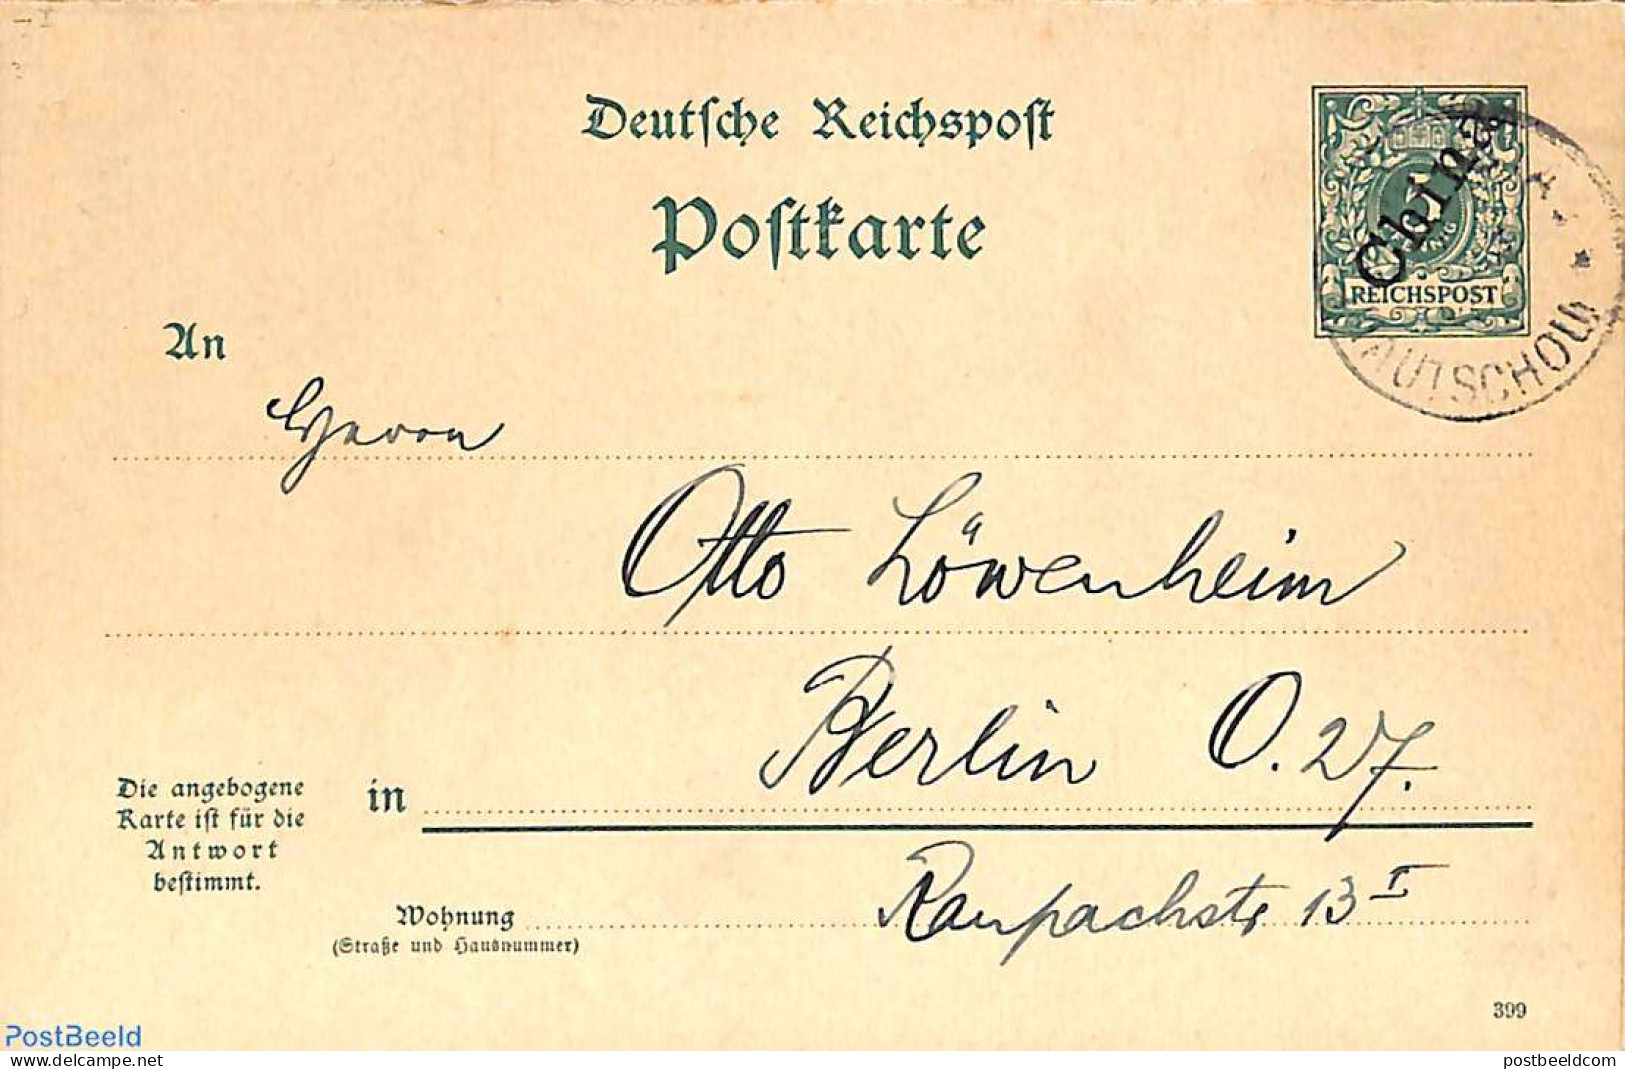 Deutsche Reichspost
Postkarte
China
REICHSPOST
AUTSCHOU
An
Herrn
Otto Löwenheim
Berlin O. 27.
Die angebogene
Karte ist für die
Antwort
bestimmt.
in
Raupachstr 13 I
Wohnung
(Straße und Hausnummer)
399
PostBeeld
www.postbeeld.com
postbeeldcom